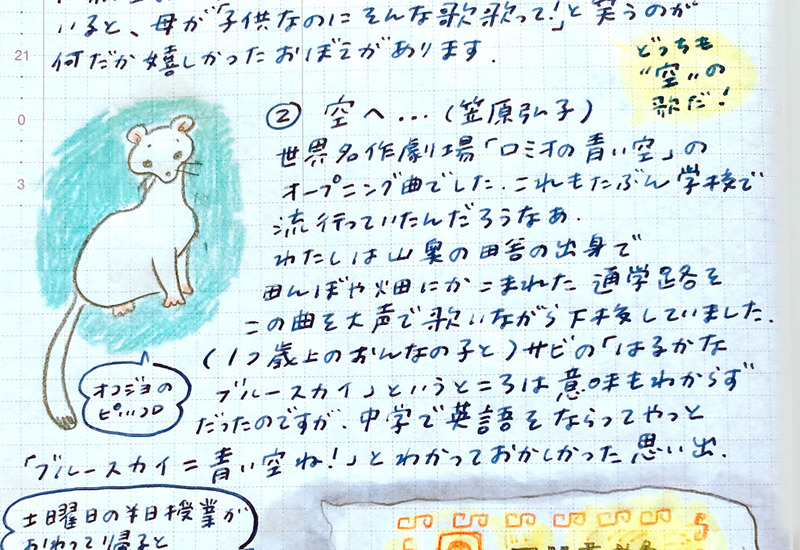 いると、母が「子供なのにそんな歌歌って!」と笑うのが
何だか嬉しかったおぼえがあります.
どっちも
"空"の
歌だ!
21
0
3
② 空へ…(笠原弘子)
世界名作劇場「ロミオの青い空」の
オープニング曲でした.これもたぶん学校で
流行っていたんだろうなあ.
わたしは山奥の田舎の出身で
田んぼや畑にかこまれた通学路を
この曲を大声で歌いながら下校していました.
(1つ歳上のおんなの子と)サビの「はるかな
ブルースカイ」というところは意味もわからず
だったのですが.中学で英語をならってやっと
「ブルースカイ=青い空ね!」とわかっておかしかった思い出.
オコジョの
ピッコロ
土曜日の半日授業が
おわって帰ると